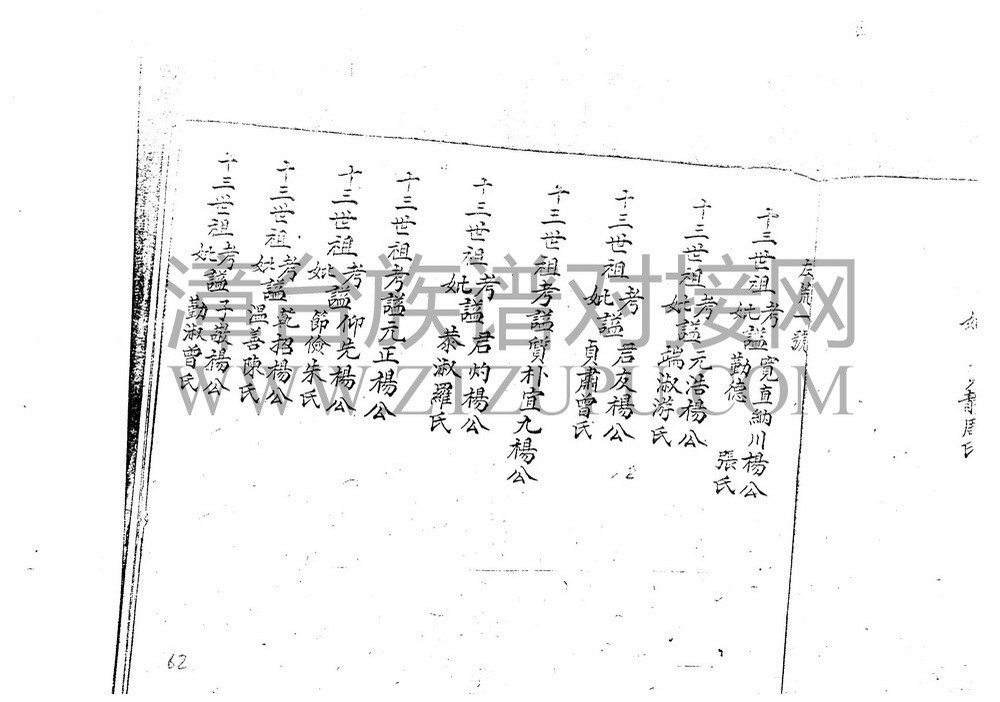 妣 壽周氏
左號一號
十三世祖考妣諡寬直納川楊公
勤德 張氏
十三世祖考妣諡元浩楊公
端淑游氏
十三世祖考妣諡君友楊公
貞肅曾氏
十三世祖考諡質朴宜九楊公
十三世祖考妣諡君灼楊公
恭淑羅氏
十三世祖考諡元正楊公
十三世祖考妣諡仰先楊公
節儉朱氏
十三世祖考妣諡乾招楊公
温善陳氏
十三世祖考妣諡子敬楊公
勤淑曾氏
62
漳台族谱对接网
WWW.ZIZUPU.COM